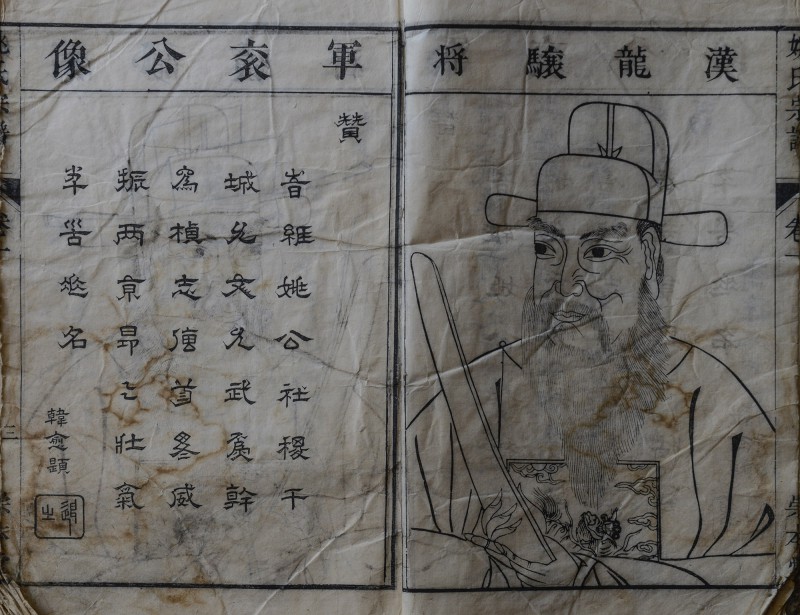 漢龍驤将軍袞公像
姚氏宗譜
卷一
賛
昔維姚公社稷干
城允文允武爲幹
爲楨志強首威
振两京昂々壯氣
垂名
韓愈題
退之
姚氏宗譜
卷一
三